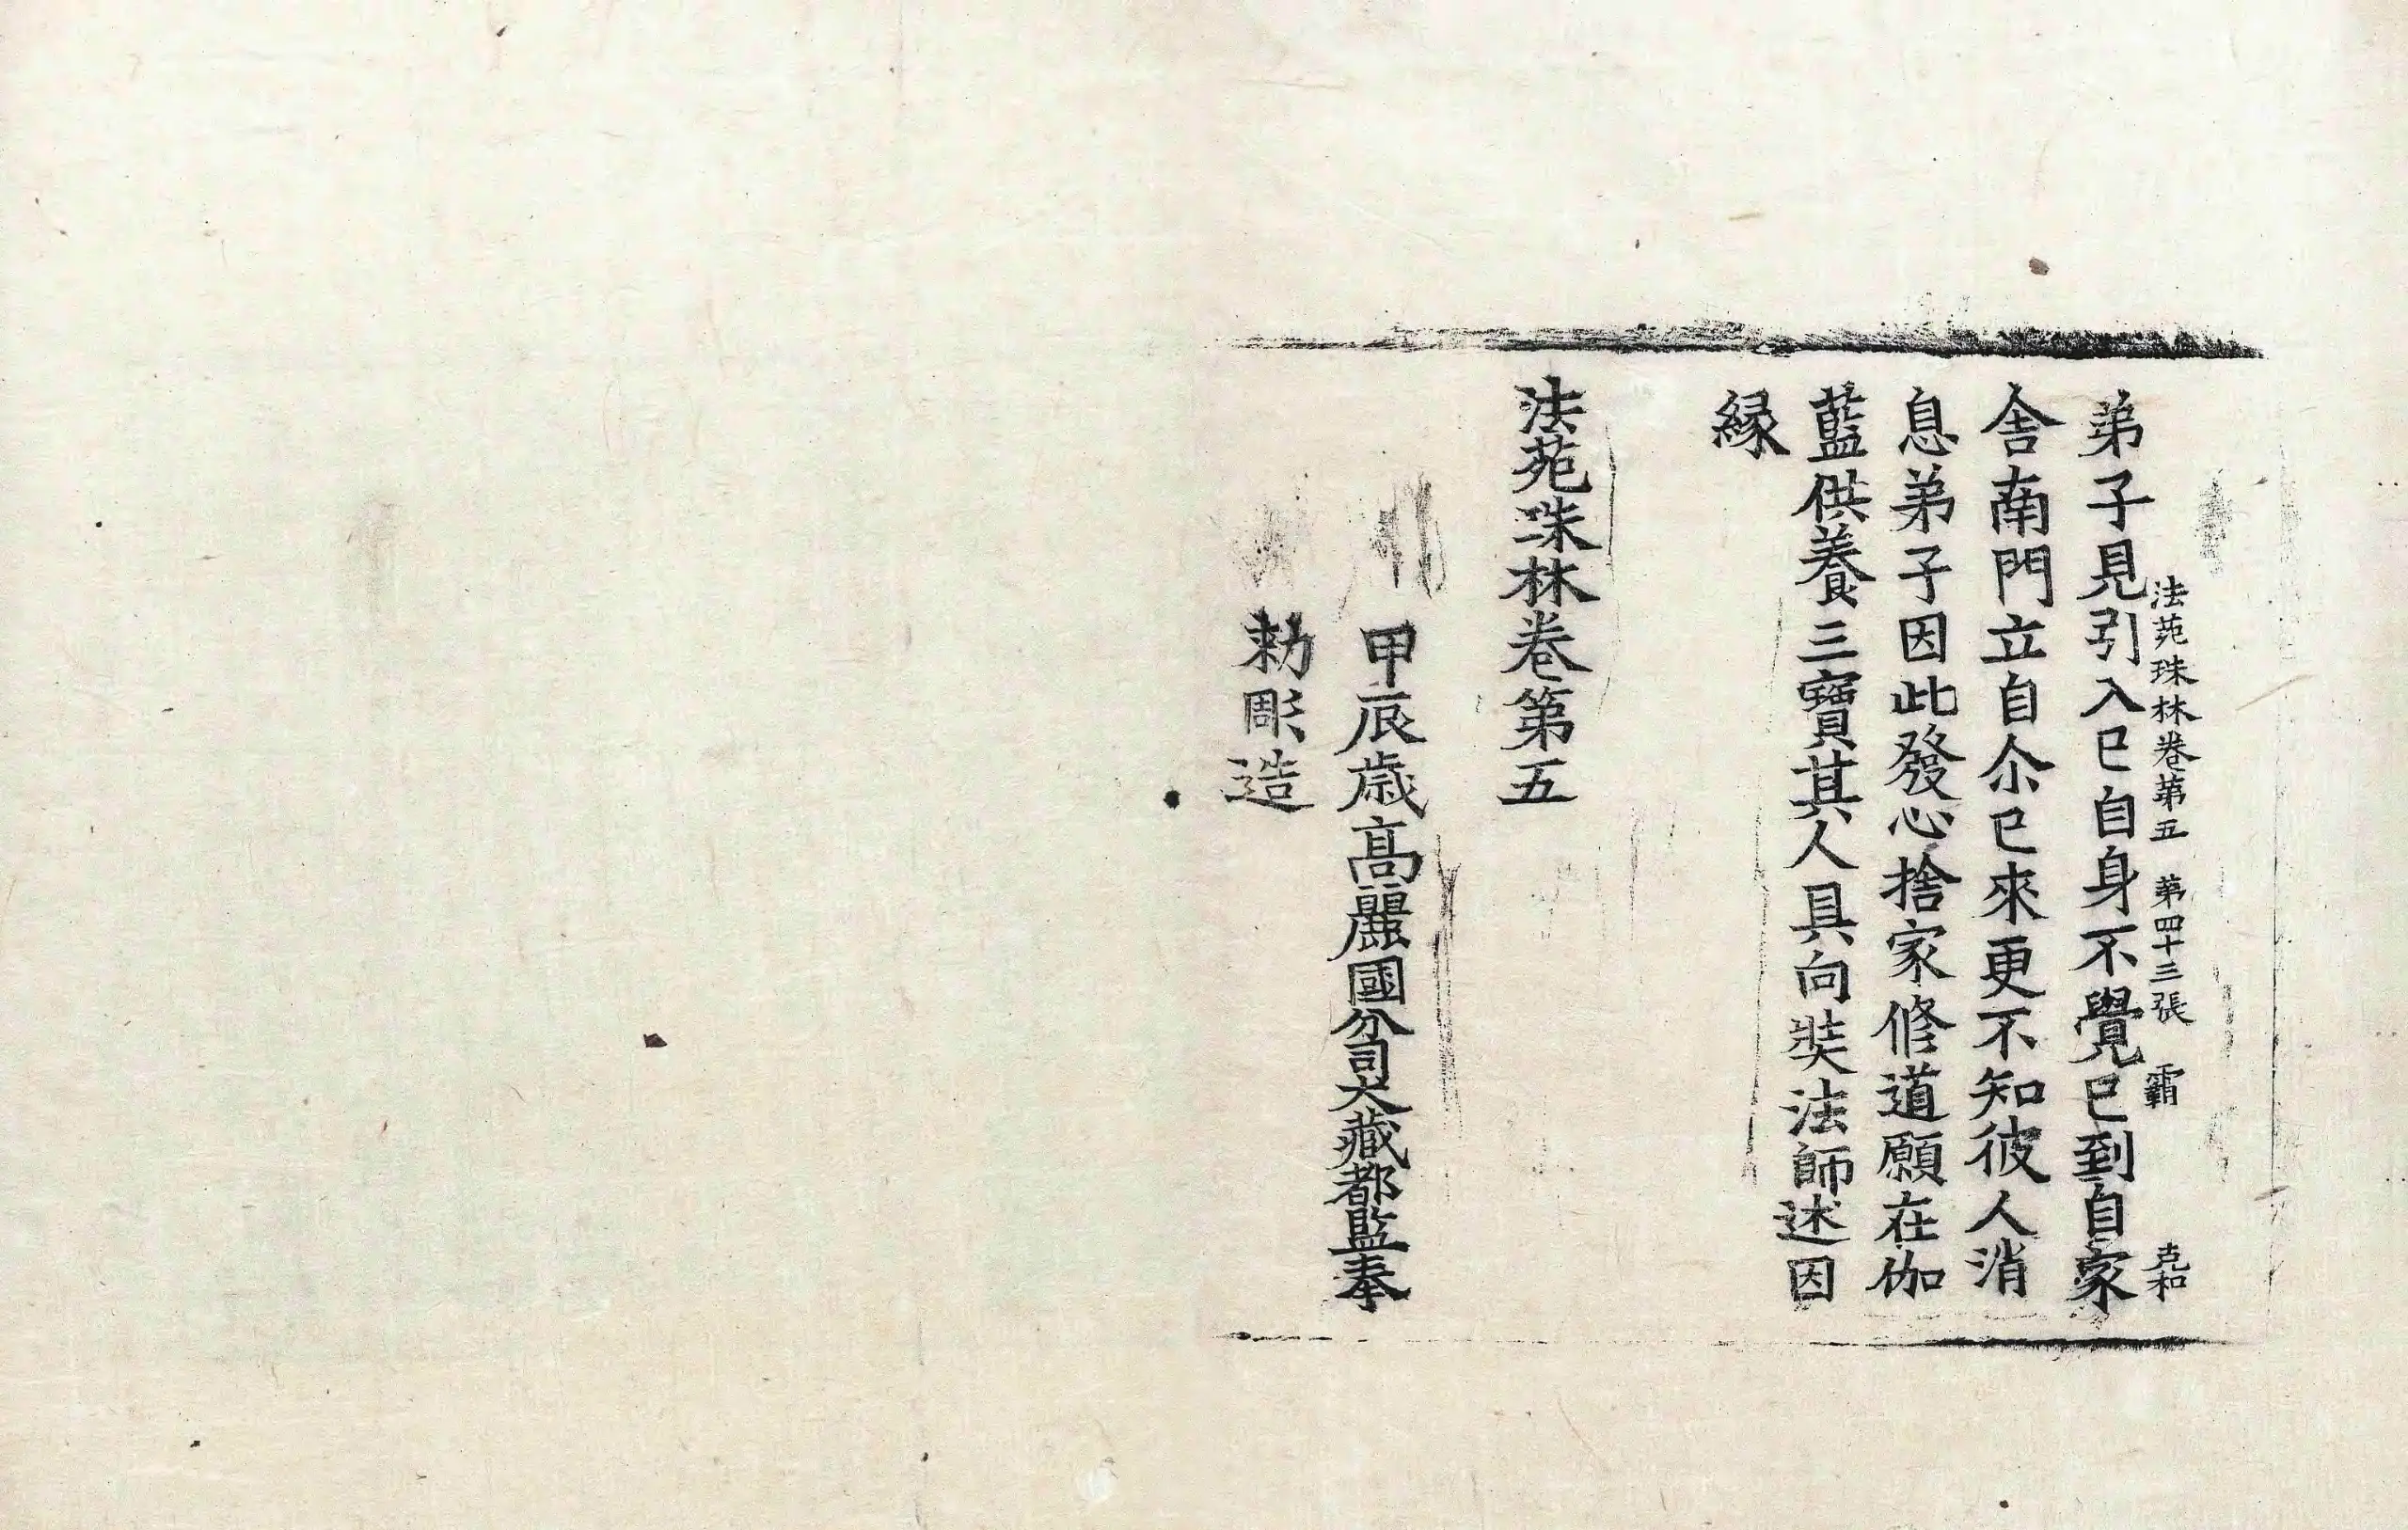 法苑珠林卷第五 第四十三張 霸 克和
弟子見引入已自身不覺已到自家
舎南門立自尒已來更不知彼人消
息弟子因此發心捨家修道願在伽
藍供養三寶其人具向奘法師述因
縁
法苑珠林卷第五
甲辰歳髙麗國分司大藏都監奉
勑彫造